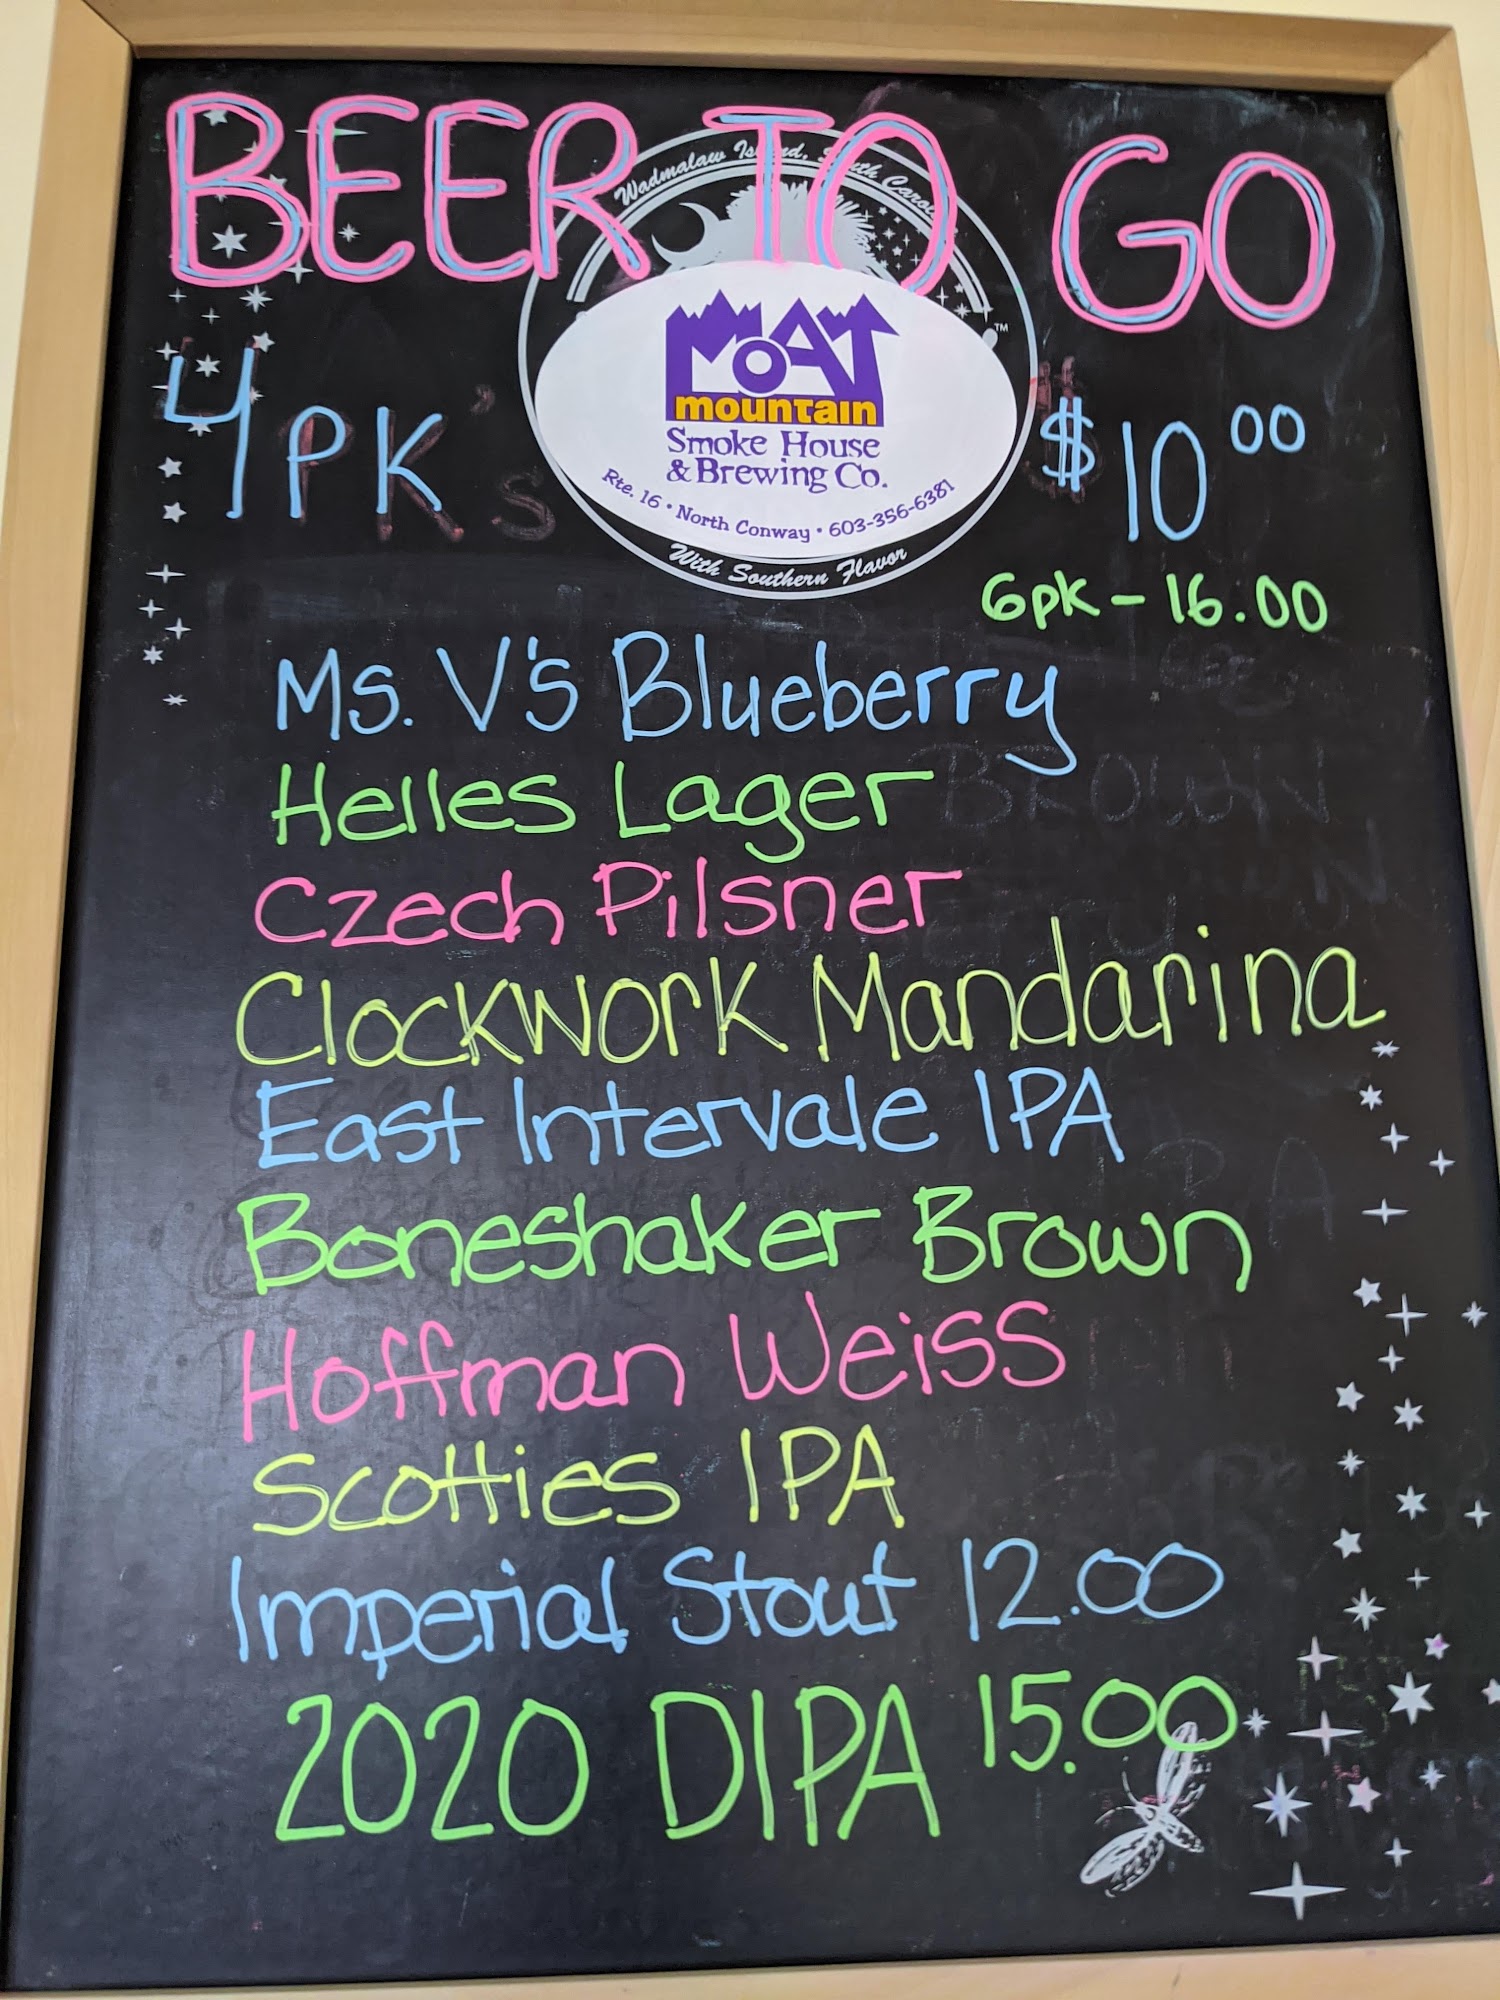 BEER TO GO
Wadmalaw Island, South Carol
MOAT
mountain
Smoke House
& Brewing Co.
Rte. 16 • North Conway • 603-356-6381
With Southern Flavor
™
4PK's $10 00
6pk - 16.00
Ms. V's Blueberry
Helles Lager
Czech Pilsner
Clockwork Mandarina
East Intervale IPA
Boneshaker Brown
Hoffman Weiss
Scotties IPA
Imperial Stout 12.00
2020 DIPA 15.00
BROWN